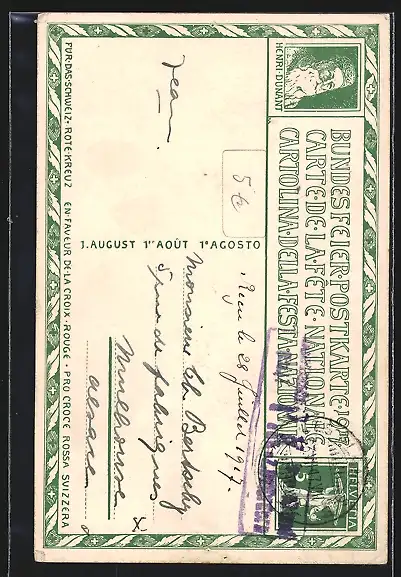 BUNDESFEIER·POSTKARTE·1917
CARTE·DE·LA·FÊTE·NATIONALE
CARTOLINA·DELLA·FESTA·NAZIONALE
HENRI·DUNANT
HELVETIA
5
Reçu le 28 Juillet 1917.
5 €
1. AUGUST 1ER AOÛT 1º AGOSTO
Monsieur Ch
de fabriques
Mulhouse
Alsace
Jean.
FÜR·DAS·SCHWEIZ·ROTE·KREUZ EN·FAVEUR·DE·LA·CROIX·ROUGE·PRO CROCE ROSSA SVIZZERA